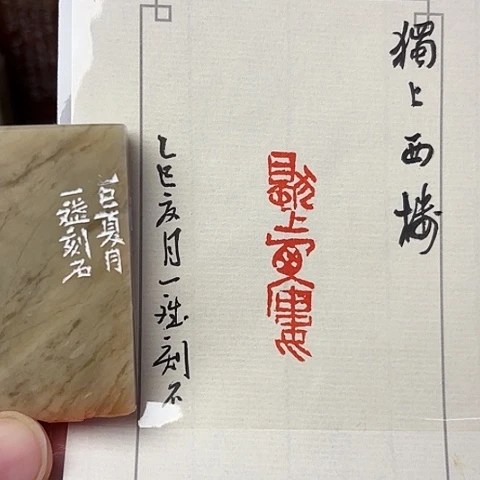 獨上西樓
獨上西樓
乙巳夏月一刻石
乙巳夏月
一刻石